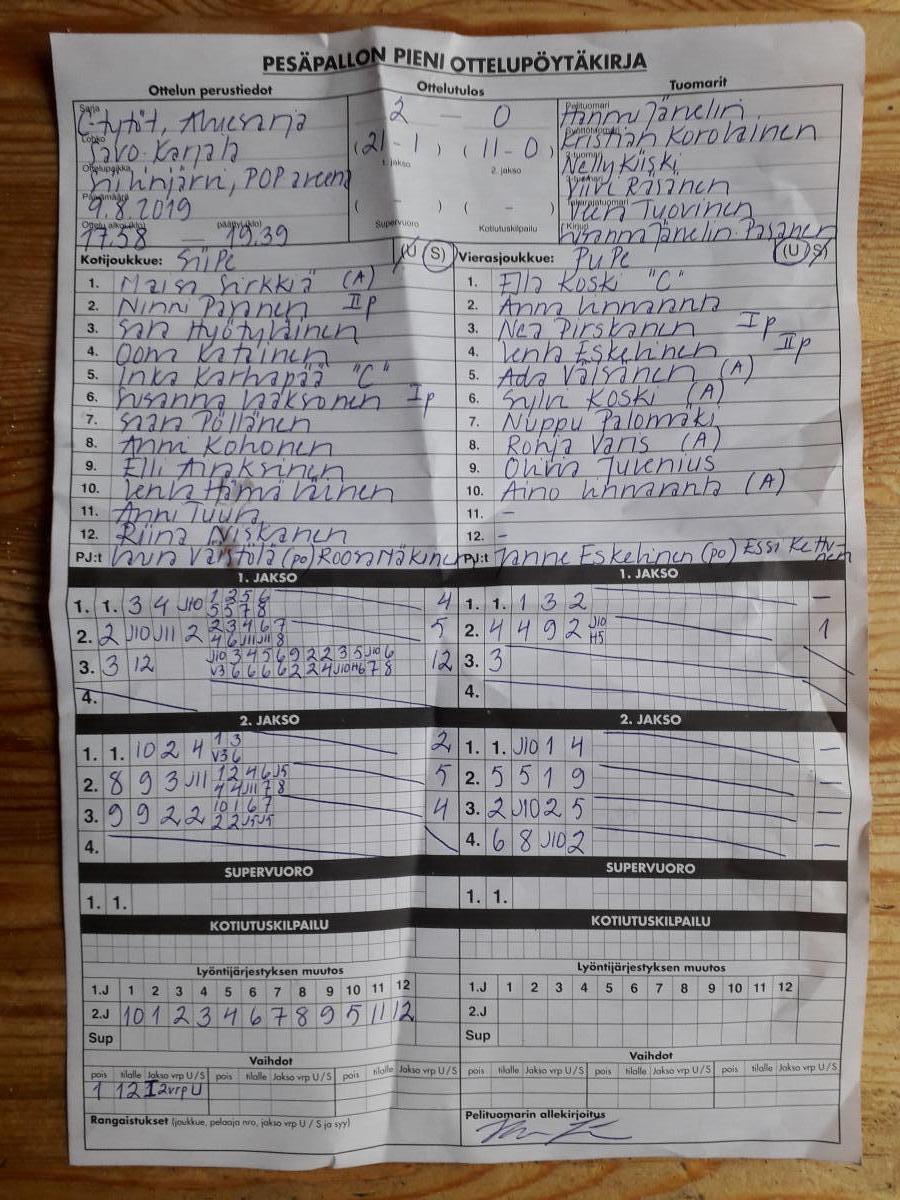 PESÄPALLON PIENI OTTELUPÖYTÄKIRJA
Ottelun perustiedot Ottelutulos Tuomarit
Sarja C-tytöt, Aluesarja
Lohko Savo-Karjala
Ottelupaikka Siilinjärvi, POP areena
Päivämäärä 9.8.2019
Ottelu alkoi (klo) 17.58 — päättyi (klo) 19.39
2 — 0
(21 - 1) (11 - 0)
1. jakso 2. jakso
( - ) ( - )
Supervuoro Kotiutuskilpailu
Pelituomari Hannu Jänelin
Syöttötuomari Kristian Korolainen
2-tuomari Nelly Kiiski
3-tuomari Viivi Räsänen
Takarajatuomari Veera Tuovinen
Kirjuri Susanna Jänelin-Pasanen
Kotijoukkue: SiiPe (U S)
1. Maisa Sirkkiä (A)
2. Ninni Pasanen II p
3. Sara Hyötyläinen
4. Oona Katainen
5. Inka Karhapää "C"
6. Susanna Laaksonen I p
7. Saan Pöllänen
8. Anni Kohonen
9. Elli Airaksinen
10. Venla Hämäläinen
11. Anni Tuura
12. Riina Niskanen
PJ:t Laura Väistölä (po) Roosa Mäkinen
Vierasjoukkue: PuPe (U S)
1. Ella Koski "C"
2. Anna Linnaranta
3. Nea Pirskanen I p
4. Venla Eskelinen II p
5. Ada Väisänen (A)
6. Sylvi Koski (A)
7. Nuppu Palomäki
8. Ronja Varis (A)
9. Olivia Juvenius
10. Aino Linnaranta (A)
11. -
12. -
PJ:t Janne Eskelinen (po) Essi Kettunen
1. JAKSO 1. JAKSO
1. 1. 3 4 J10 1 2 5 6 4
5 5 7 8
2. 2 J10 J11 2 2 3 4 6 7 5
4 6 J11 J11 8
3. 3 12 J10 3 4 5 6 9 2 2 3 5 J10 6 12
V3 6 6 6 6 2 2 4 J10 H6 7 8
4.
1. 1. 1 3 2 —
2. 4 4 9 2 J10 1
H5
3. 3
4.
2. JAKSO 2. JAKSO
1. 1. 10 2 4 1 3 2
V3 6
2. 8 9 3 J11 1 2 4 6 J5 5
4 4 J11 7 8
3. 9 9 2 2 10 1 6 7 4
2 2 J5 J5
4.
1. 1. J10 1 4 —
2. 5 5 1 9 —
3. 2 J10 2 5 —
4. 6 8 J10 2 —
SUPERVUORO SUPERVUORO
1. 1. 1. 1.
KOTIUTUSKILPAILU KOTIUTUSKILPAILU
Lyöntijärjestyksen muutos Lyöntijärjestyksen muutos
1.J 1 2 3 4 5 6 7 8 9 10 11 12 1.J 1 2 3 4 5 6 7 8 9 10 11 12
2.J 10 1 2 3 4 6 7 8 9 5 11 12 2.J
Sup Sup
Vaihdot Vaihdot
pois tilalle Jakso vrp U/S pois tilalle Jakso vrp U/S pois tilalle Jakso vrp U/S pois tilalle Jakso vrp U/S pois tilalle Jakso vrp U/S pois tilalle Jakso vrp U/S
1 12 I 2vrp U
Rangaistukset (joukkue, pelaaja nro, jakso vrp U / S ja syy) Pelituomarin allekirjoitus